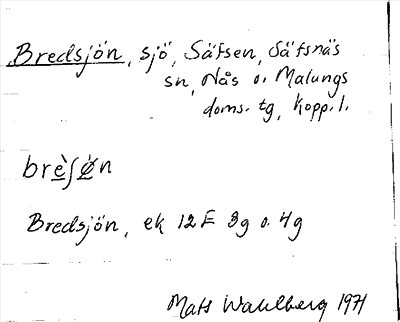 Bredsjön, sjö, Säfsen, Säfsnäs
sn, Nås o. Malungs
doms. tg, Kopp. l.
brèʃø̀n
Bredsjön, ek 12 F 3g o. 4g
Mats Wahlberg 1971